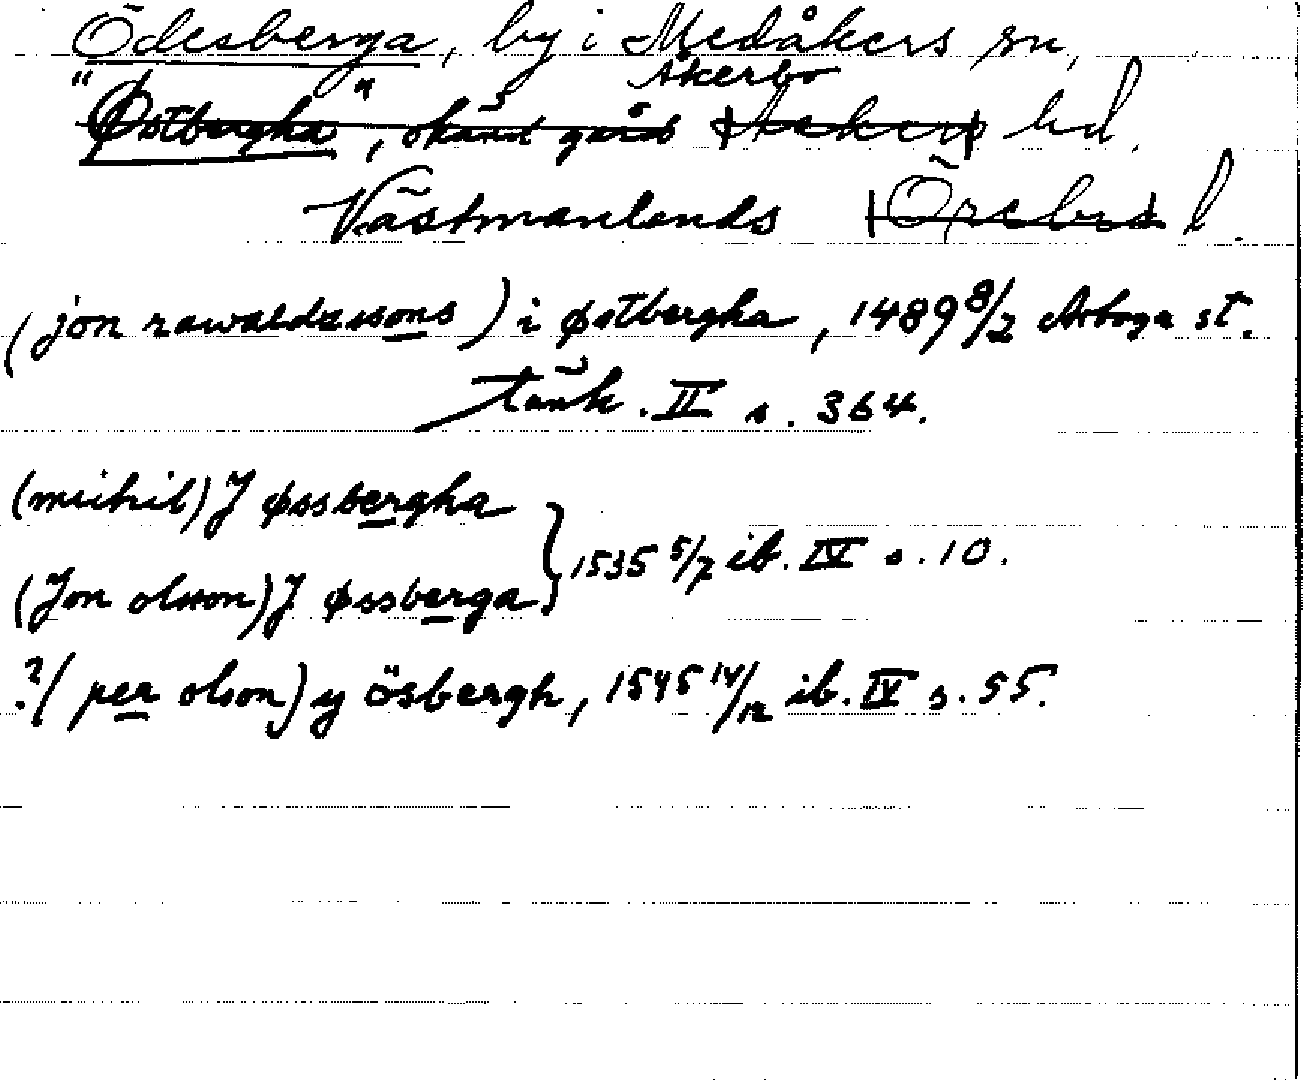 Ödesberga, by i Medåkers sn,
Åkerbo
"Østbergha", okänd gård Askers hd.
Västmanlands Örebro l.
(jon rawaldzssons) i østbergha, 1489 8/2 Arboga st.
tänk. II s. 364.
(michil) J øssbergha
1535 5/7 ib. IV s. 10.
(Jon olsson) J øssberga
?(per olson) y ösbergh, 1545 14/12 ib. IV s. 55.